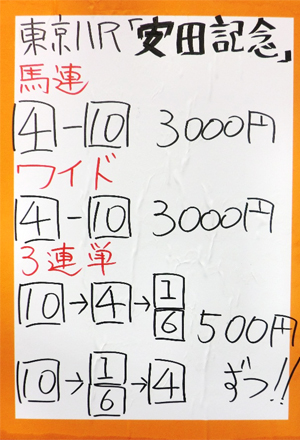 東京11R「安田記念」
馬連
4-10 3000円
ワイド
4-10 3000円
3連単
10→4→1/6
500円
10→1/6→4
ずつ!!